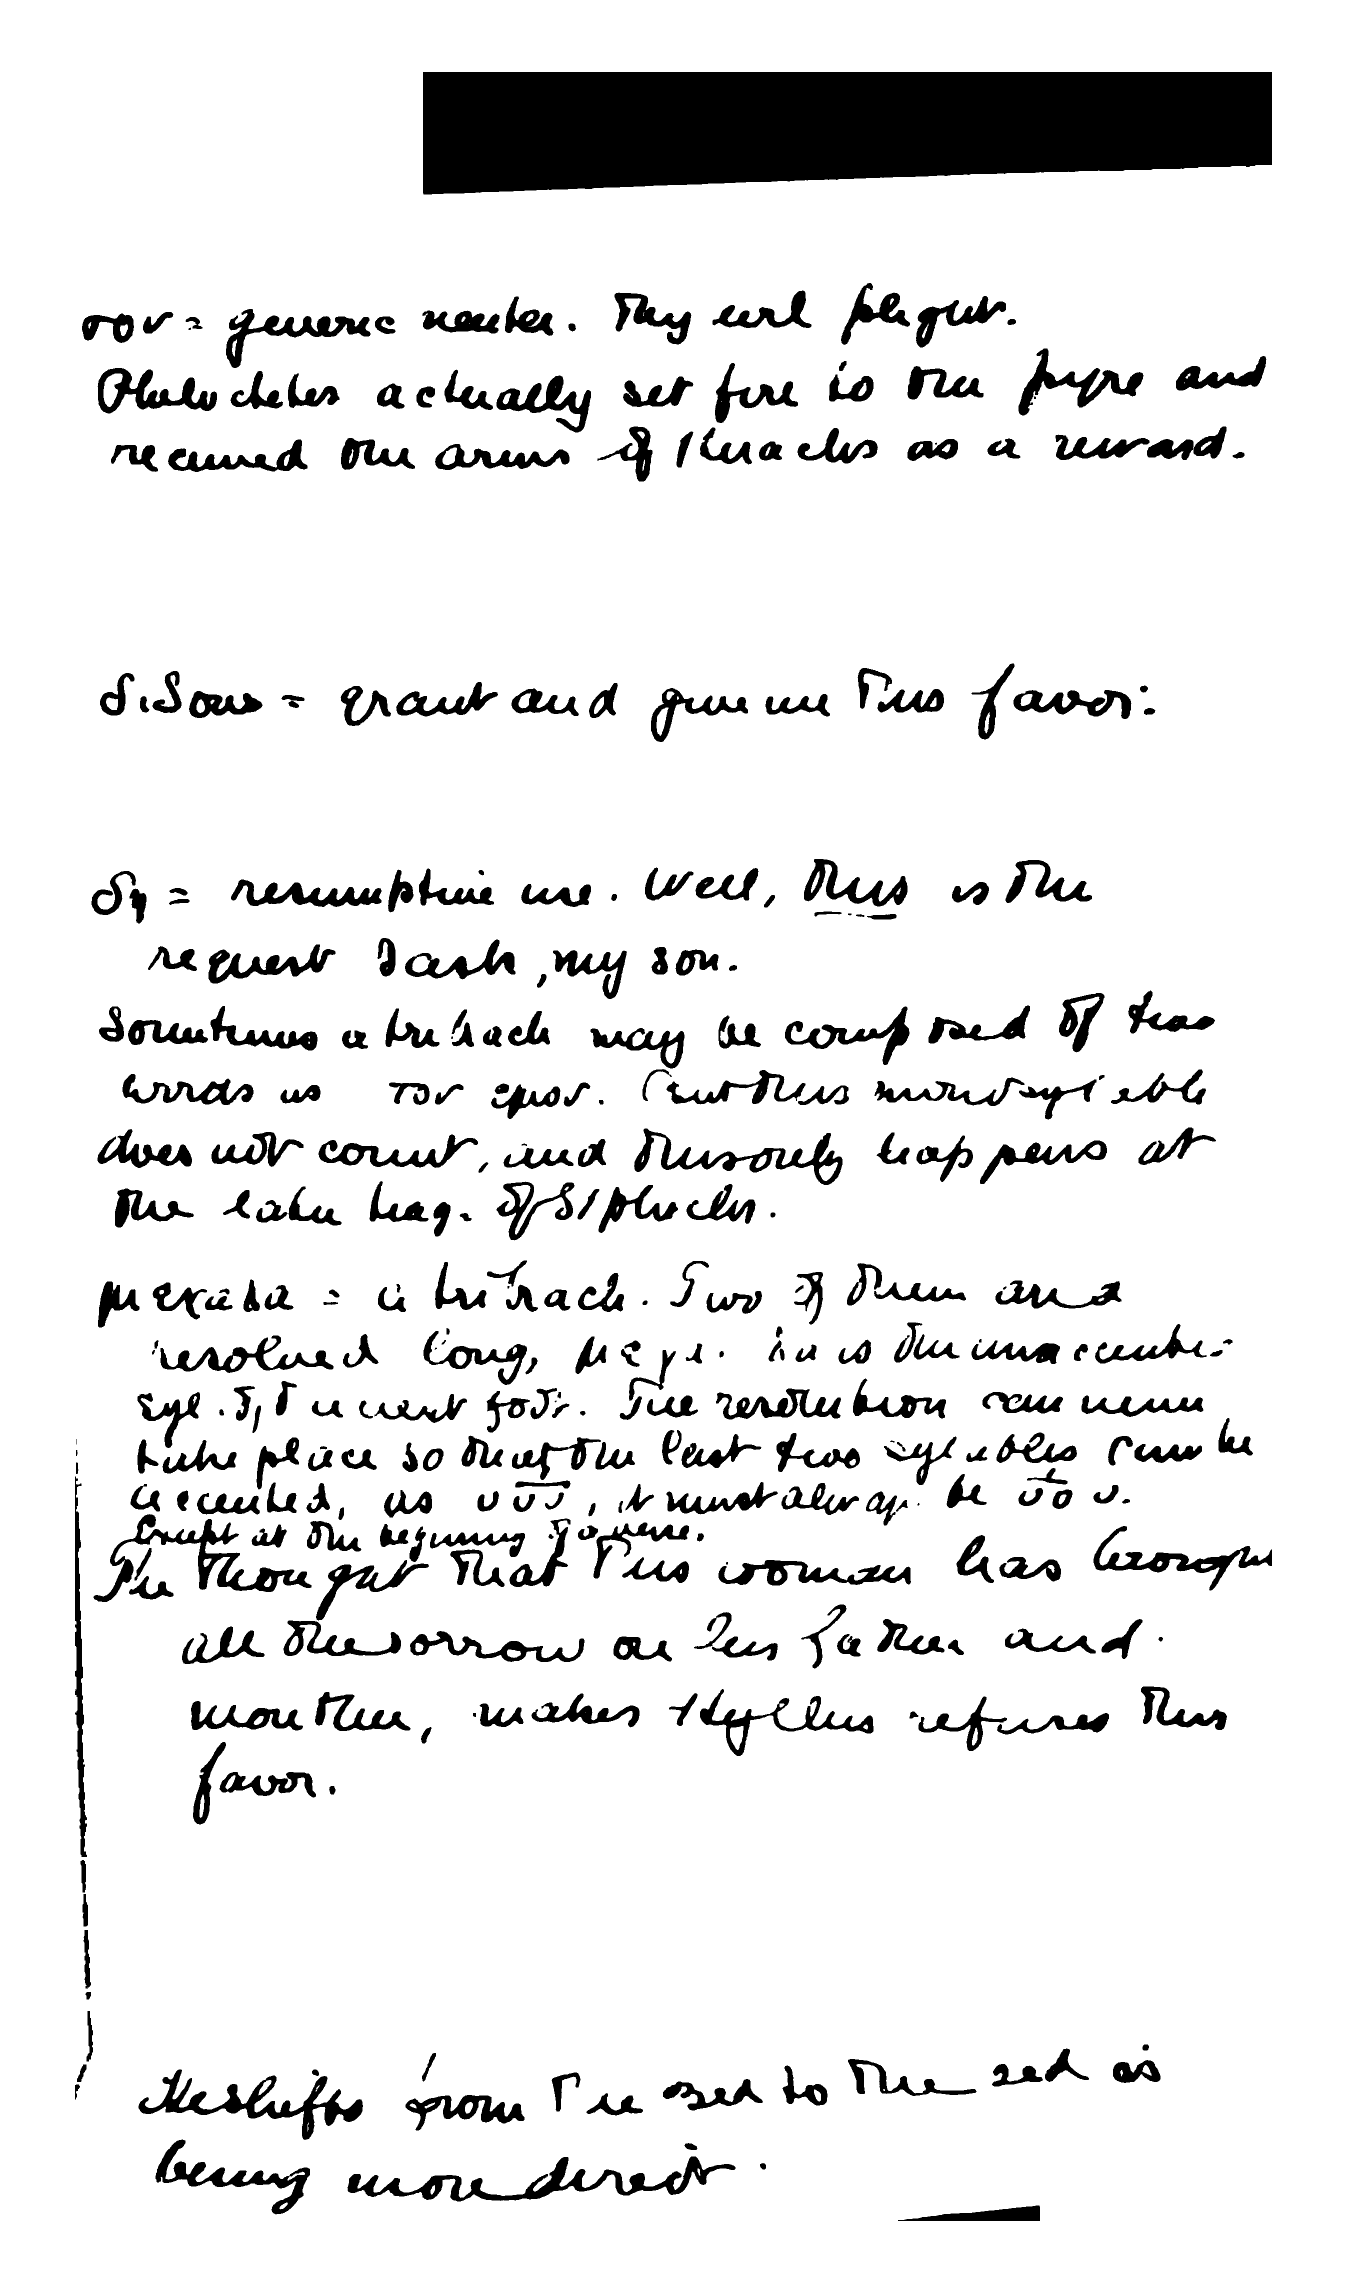 σον = generic neuter. Thy evil plight.
Philoctetes actually set fire to the pyre and
received the arms of Heracles as a reward.
διδου = grant and give me this favor:
δη = resumptive use. Well, this is the
request I ask, my son.
Sometimes a tribrach may be composed of two
words as τον εμον. But this monosyllable
does not count, and this only happens at
the later trag. of Sophocles.
a tribrach. Two of them are a
resolved long, is the unaccented
syl. of next foot. The resolution can never
take place so that the last two syllables can be
accented, as υυυ, it must always be υυυ.
Except at the beginning of a verse.
The thought that this woman has brought
all the sorrow on his father and
mouther, makes Hyllus refuses this
favor.
He shifts from the 3rd to the 2nd as
being more direct.